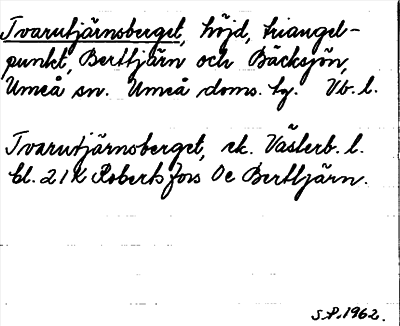 Tvarutjärnsberget, höjd, triangel-
punkt, Berttjärn och Bäcksjön,
Umeå sn. Umeå doms. hg. Vb. l.
Tvarutjärnsberget, ek. Västerb. l.
bl. 21 K Robertsfors Oc Berttjärn.
S.P. 1962.